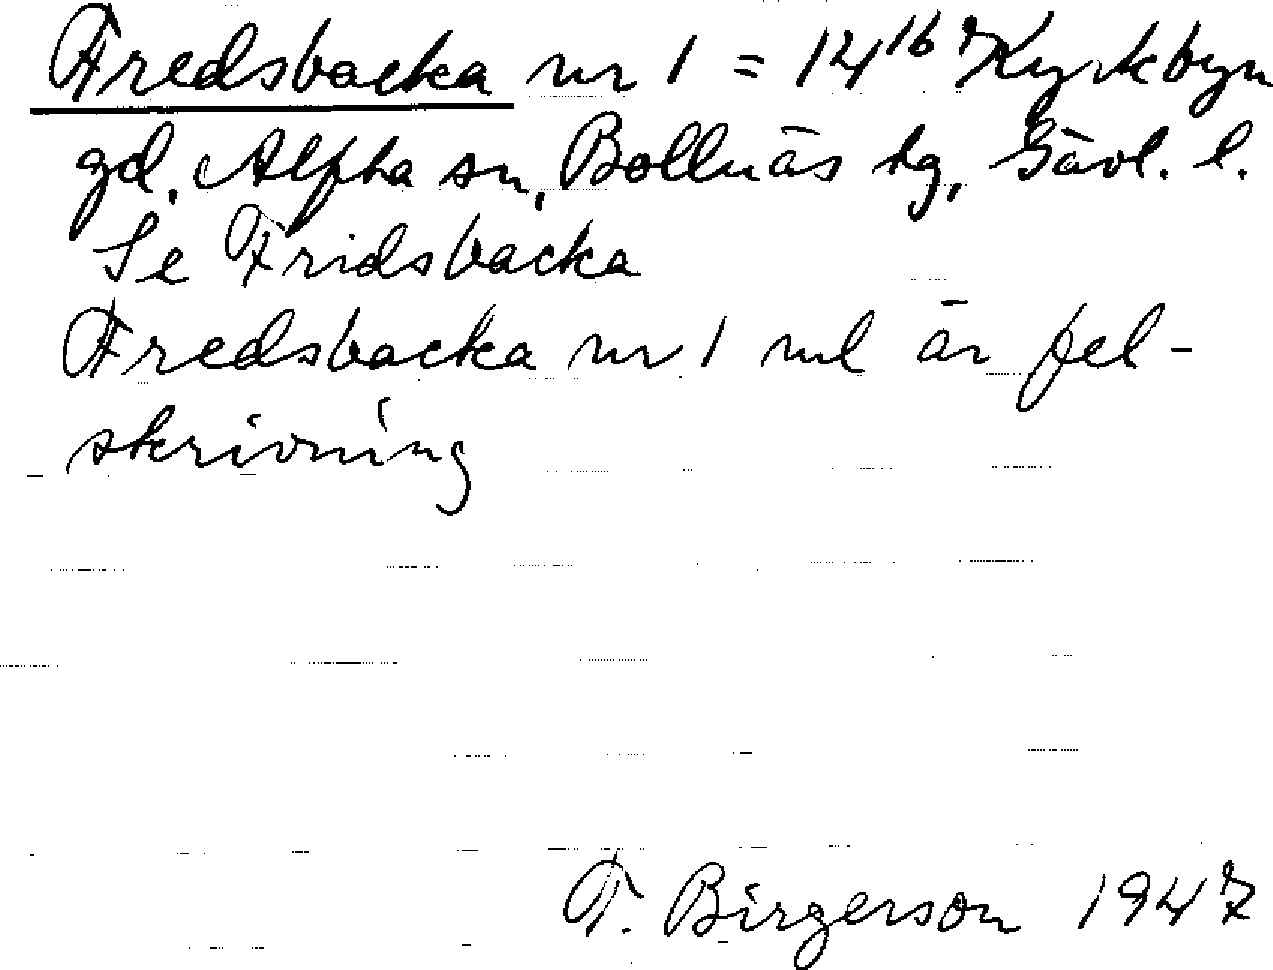 Fredsbacka nr 1 = 14¹⁶ Kyrkbyn
gd, Alfta sn, Bollnäs tg, Gävl. l.
Se Fridsbacka
Fredsbacka nr 1 ml är fel-
skrivning
F. Birgerson 1947